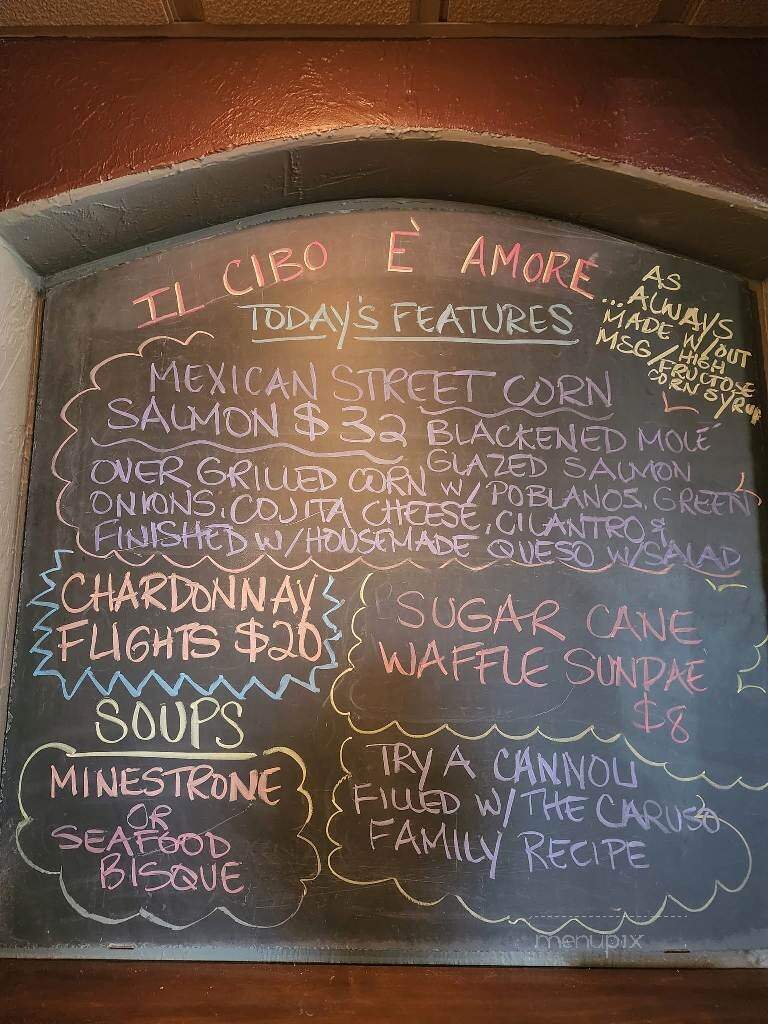 IL CIBO È AMORE
TODAY'S FEATURES
AS
...ALWAYS
MADE W/OUT
MSG/HIGH
FRUCTOSE
CORN SYRUP
MEXICAN STREET CORN
SALMON $32 BLACKENED MOLÉ
GLAZED SALMON
OVER GRILLED CORN W/POBLANOS, GREEN
ONIONS, COJITA CHEESE, CILANTRO &
FINISHED W/HOUSEMADE QUESO W/SALAD
CHARDONNAY
FLIGHTS $20
SUGAR CANE
WAFFLE SUNDAE
$8
SOUPS
MINESTRONE
OR
SEAFOOD
BISQUE
TRY A CANNOLI
FILLED W/THE CARUSO
FAMILY RECIPE
menupix